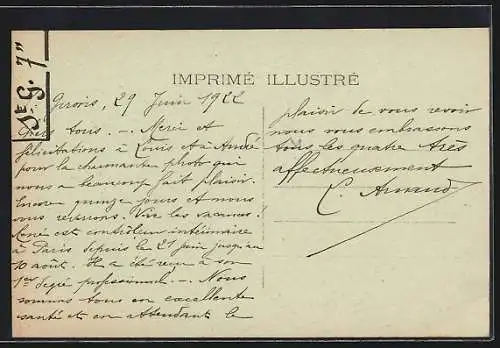 Js G. 7"
IMPRIMÉ ILLUSTRÉ
29 Juin 1922
Chers tous. — Merci et
félicitations à Louis et à André
pour la charmante photo qui
nous a beaucoup fait plaisir.
Encore quinze jours et nous
vous reverrons. Vive les vacances!
René est contrôleur intérimaire
à Paris depuis le 21 juin jusqu'au
10 août. Il a été reçu à son
1er degré professionnel. — Nous
sommes tous en excellente
santé et en attendant le
plaisir de vous revoir
nous vous embrassons
tous les quatre très
affectueusement
C. Arnaud